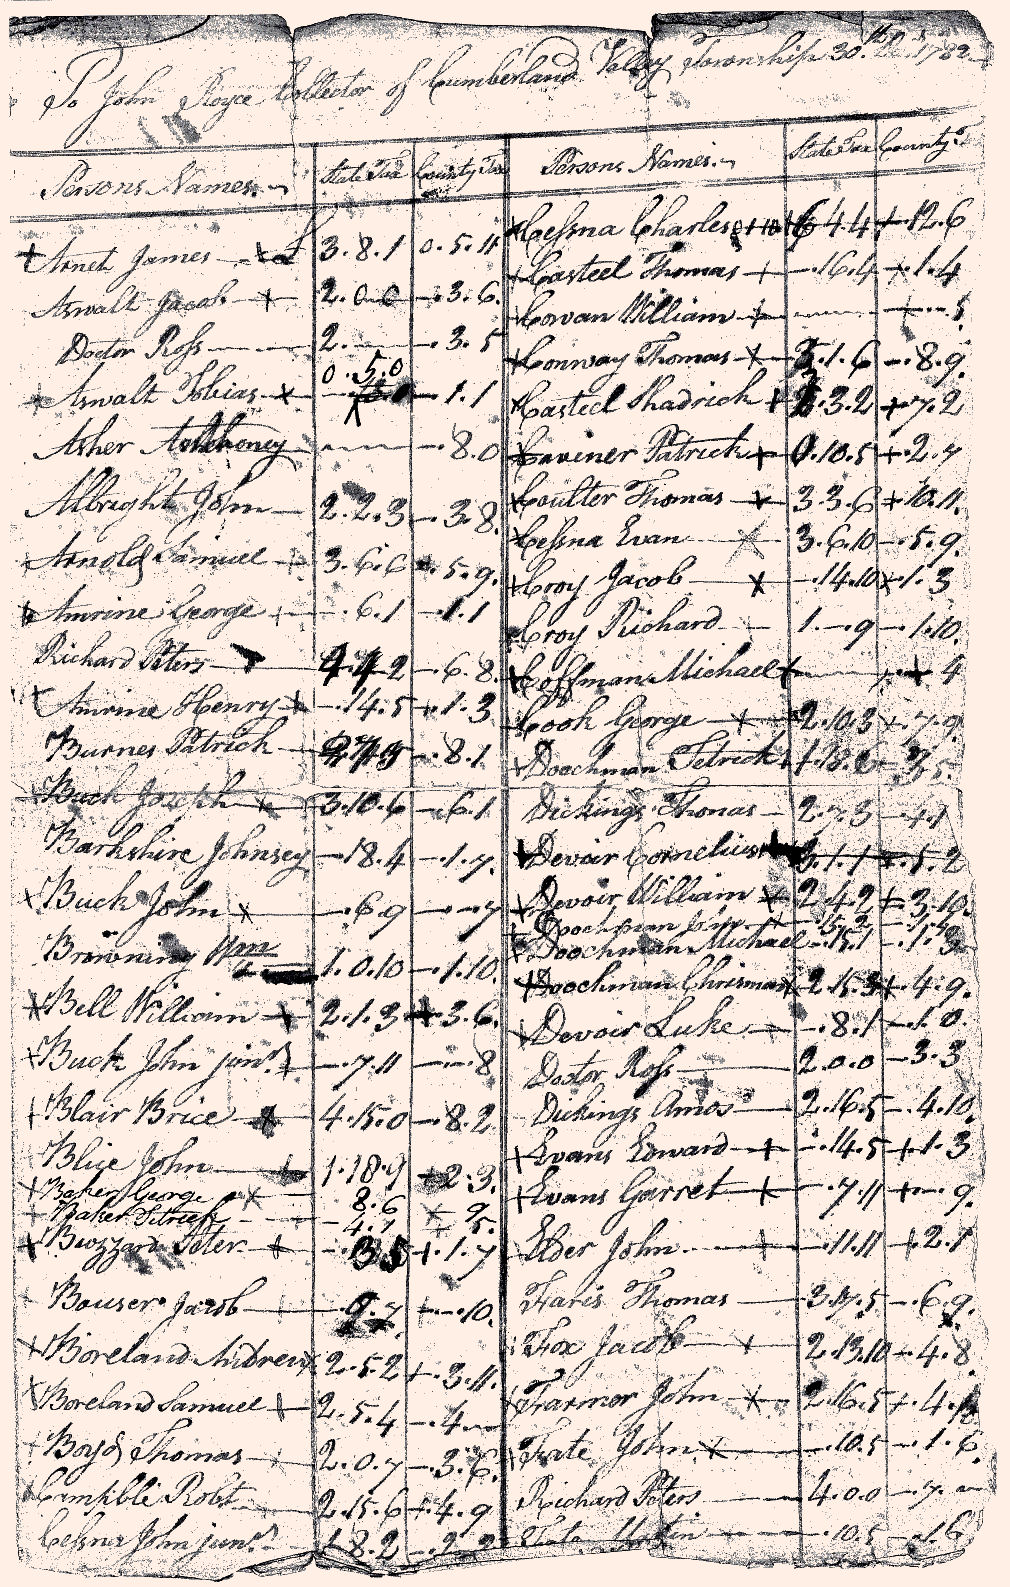 To John Royce Collector of Cumberland Valley Township 30th 1782
Persons Names State Tax County Tax
Arnet James 3.8.1 0.5.11
Aswalt Jacob 2.0.0 -.3.6
Doctor Ross 2. -.3.5
0.5.0
Aswalt Tobias -.1.1
Asher -.8.0
Albright John 2.2.3 -.3.8
Arnold Samuel 3.6.6 -.5.9
Amrine George -.6.1 -.1.1
Richard Peters -.6.8
Amrine Henry -.14.5 -.1.3
Burnes Patrick -.8.1
Buck Joseph 3.10.6 -.6.1
Barkshire Johnsey -.18.4 -.1.7
Buck John -.6.9 -.-.7
Browning Wm 1.0.10 -.1.10
Bell William 2.1.3 -.3.6
Buck John junr -.7.11 -.-.8
Blair Brice 4.15.0 -.8.2
Blue John 1.18.9 -.2.3
Baker George 8.6 9
Baker Petrick 4.7 5
Buzzard Peter -.1.7
Bouser Jacob -.9.7 -.-.10
Boreland Andrew 2.5.2 -.3.11
Boreland Samuel 2.5.4 -.4.-
Boyd Thomas 2.0.7 -.3.6
Campble Robt 2.15.6 -.4.9
Cessna John junr 1.8.2 -.2.2
Persons Names State Tax County T
Cessna Charles 6.4.4 -.12.6
Casteel Thomas -.16.4 -.1.4
Cowan William -.-.5
Conway Thomas 3.1.6 -.8.9
Casteel Shadrick 3.3.2 -.7.2
Caviner Patrick 0.10.5 -.2.7
Coulter Thomas 3.3.6 -.10.11
Cessna Evan 3.6.10 -.5.9
Croy Jacob -.14.10 -.1.3
Croy Richard 1.-.9 -.1.10
Coffman Michael 4
Cook George 2.10.3 -.7.9
Doochman Petrick 1.18.6
Dickings Thomas 2.7.3 -.4.1
Devoir Cornelius 3.1.1 -.5.2
Devoir William 2.4.2 -.3.10
Doochman John
Doochman Michael -.15.1 -.1.3
Doochman Chrisman 2.15.3 -.4.9
Devoir Luke -.8.1 -.1.0
Doctor Ross 2.0.0 -.3.3
Dickings Amos 2.16.5 -.4.10
Evans Edward -.14.5 -.1.3
Evans Garret -.7.11 -.-.9
Elder John -.11.11 -.2.1
Faris Thomas 3.17.5 -.6.9
Fox Jacob 2.13.10 -.4.8
Farmor John 2.16.5 -.4.
Fate John -.10.5 -.1.6
Richard Peters 4.0.0 -.7.-
-.10.5 -.1.6